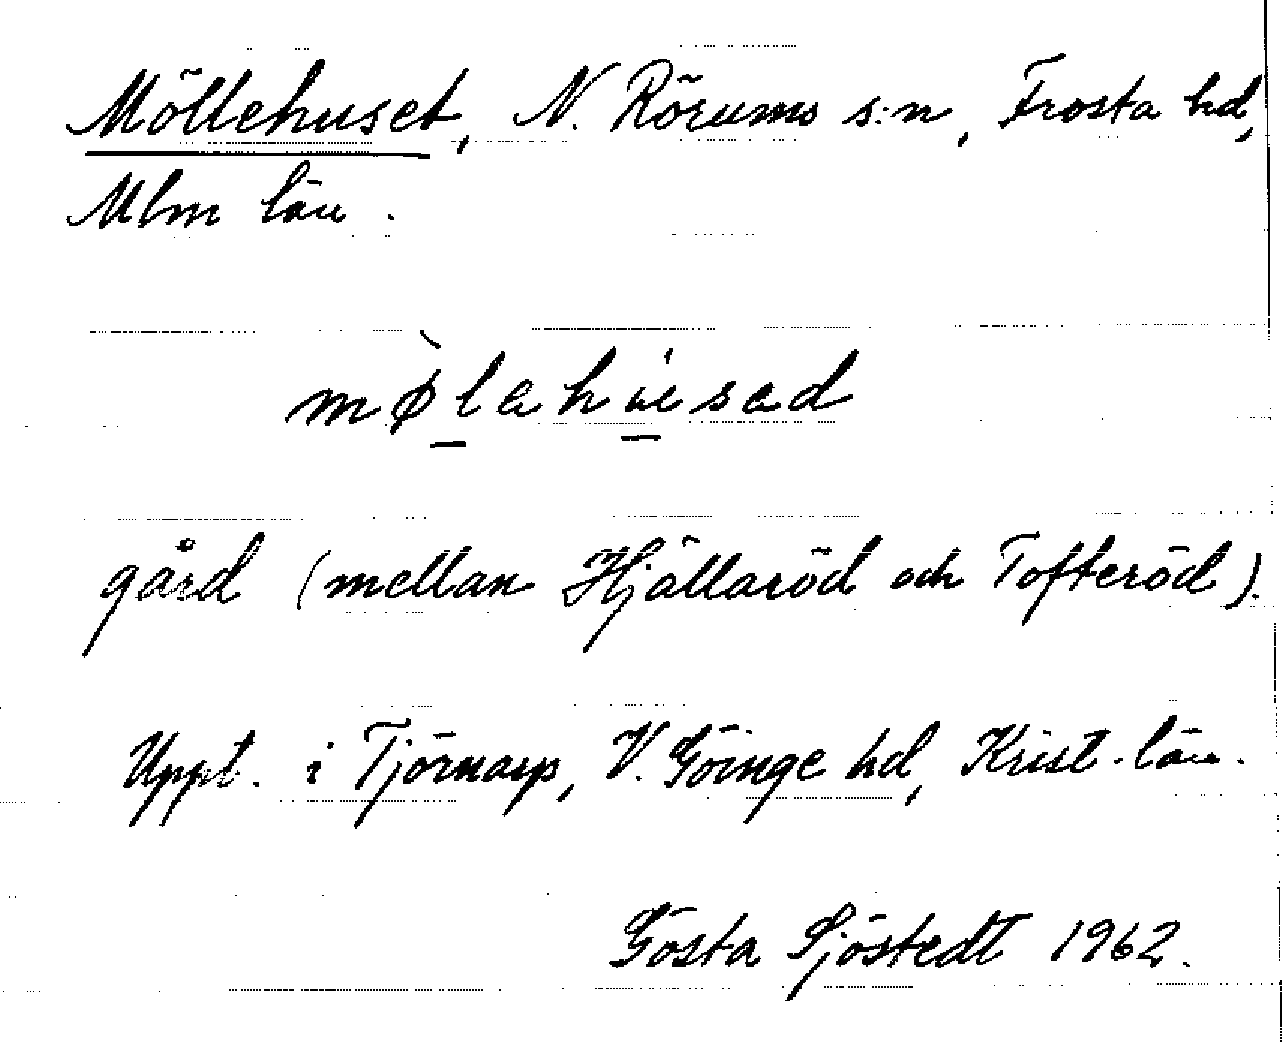 Möllehuset, N. Rörums s:n, Frosta hd,
Mlm län.
mø̀lahu̍sad
gård (mellan Hjällaröd och Tofteröd).
Uppt. i Tjörnarp, V. Göinge hd, Krist. län.
Gösta Sjöstedt 1962.